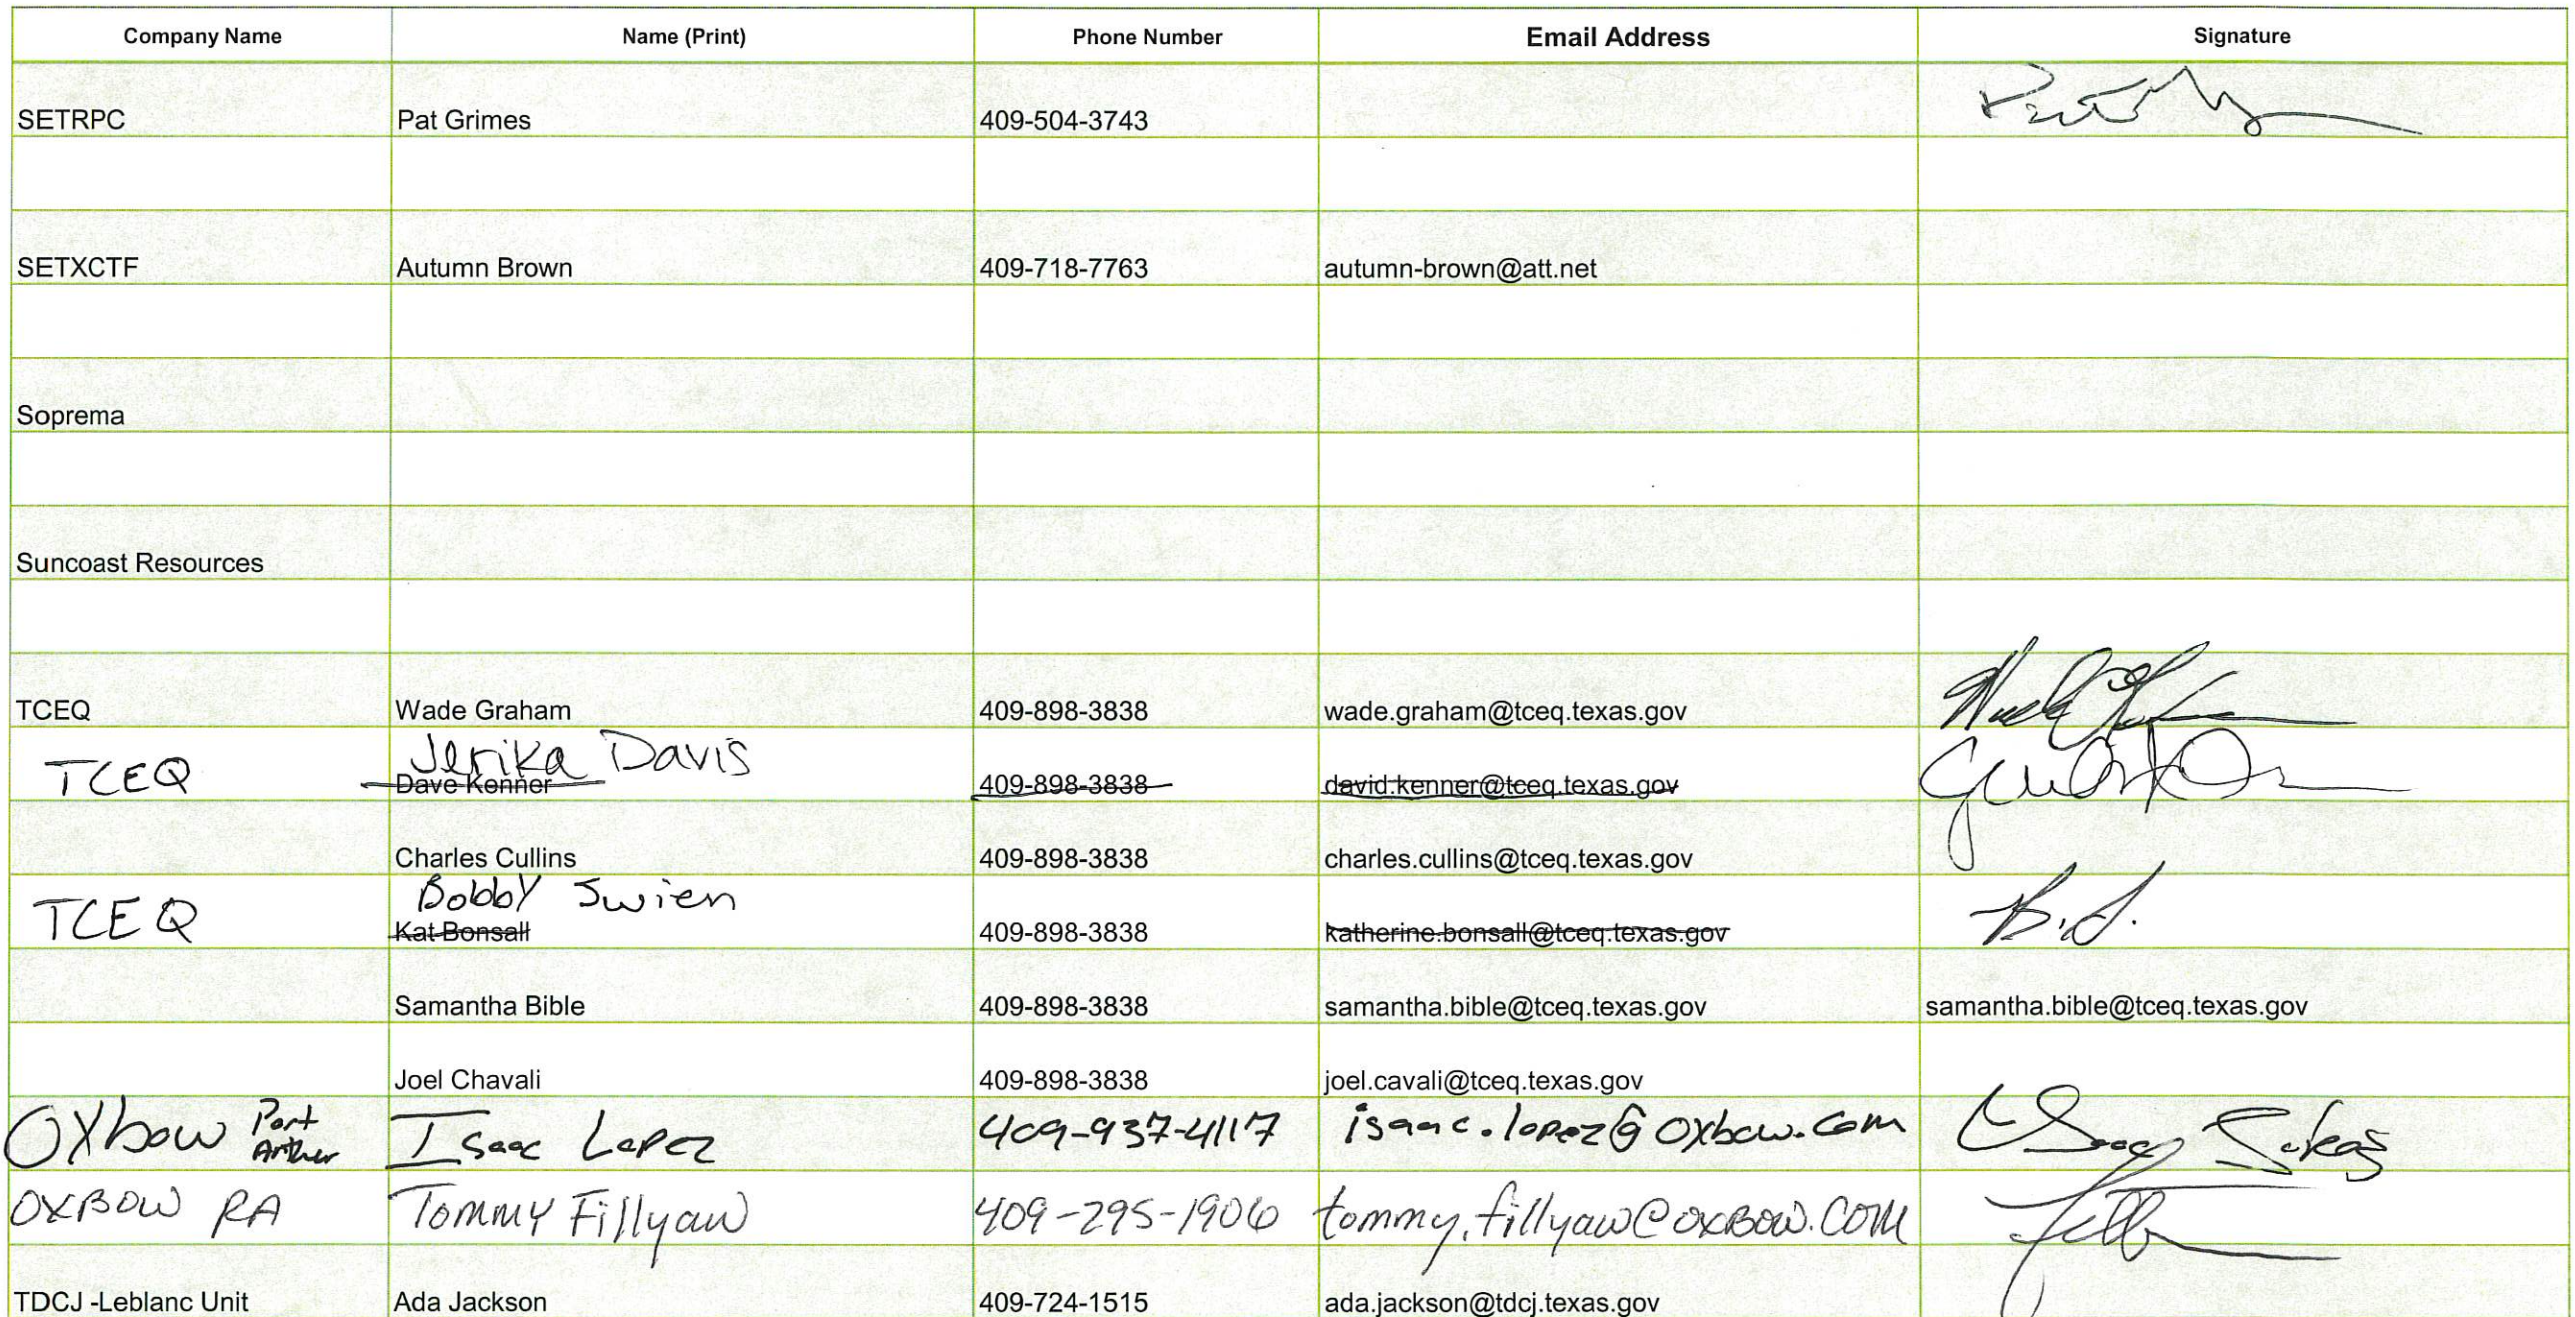 Company Name Name (Print) Phone Number Email Address Signature
SETRPC Pat Grimes 409-504-3743
SETXCTF Autumn Brown 409-718-7763 autumn-brown@att.net
Soprema
Suncoast Resources
TCEQ Wade Graham 409-898-3838 wade.graham@tceq.texas.gov
Jerika Davis
TCEQ Dave Kenner 409-898-3838 david.kenner@tceq.texas.gov
Charles Cullins 409-898-3838 charles.cullins@tceq.texas.gov
Bobby Swien
TCEQ Kat Bonsall 409-898-3838 katherine.bonsall@tceq.texas.gov B.S.
Samantha Bible 409-898-3838 samantha.bible@tceq.texas.gov samantha.bible@tceq.texas.gov
Joel Chavali 409-898-3838 joel.cavali@tceq.texas.gov
Oxbow Port Arthur Isaac Lopez 409-937-4117 isaac.lopez@oxbow.com
OXBOW PA Tommy Fillyaw 409-295-1906 tommy.fillyaw@oxbow.com
TDCJ -Leblanc Unit Ada Jackson 409-724-1515 ada.jackson@tdcj.texas.gov